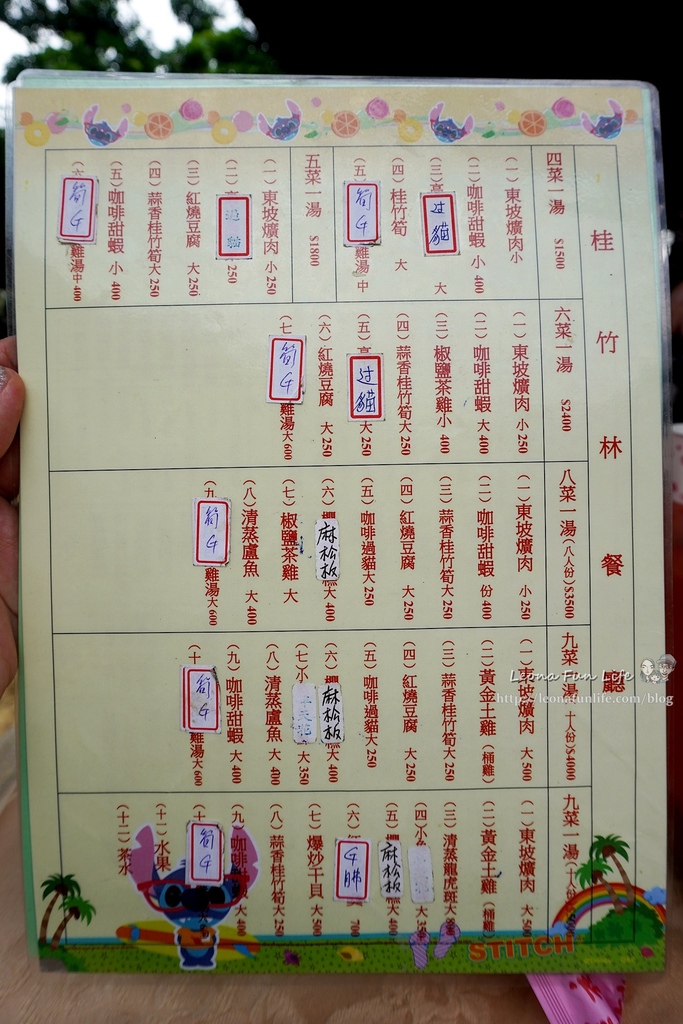 桂竹林餐廳
四菜一湯 $1500
(一)東坡爌肉小
(二)咖啡甜蝦 小 400
(三) 过貓 大
(四)桂竹筍 大
(五) 筍G 雞湯 中
五菜一湯 $1800
(一)東坡爌肉 小 250
(二) 250
(三)紅燒豆腐 大 250
(四)蒜香桂竹筍大 250
(五)咖啡甜蝦 小 400
筍G 雞湯 中 400
六菜一湯 $2400
(一)東坡爌肉 小 250
(二)咖啡甜蝦 大 400
(三)椒鹽茶雞小 400
(四)蒜香桂竹筍大 250
(五) 过貓 大 250
(六)紅燒豆腐 大 250
(七) 筍G 雞湯大 600
八菜一湯(八人份)$3500
(一)東坡爌肉 小 250
(二)咖啡甜蝦 份 400
(三)蒜香桂竹筍大 250
(四)紅燒豆腐 大 250
(五)咖啡過貓大 250
(六) 麻松板 大 400
(七)椒鹽茶雞 大
(八)清蒸鱸魚 大 400
(九 筍G 雞湯大 600
九菜一湯(十人份)$4000
(一)東坡爌肉 大 500
(二)黃金土雞(桶雞)
(三)蒜香桂竹筍大 250
(四)紅燒豆腐 大 250
(五)咖啡過貓大 250
(六) 麻松板 大 400
(七)小 大 350
(八)清蒸鱸魚 大 400
(九)咖啡甜蝦 大 400
(十 筍G 雞湯大 600
九菜一湯(十人份)
(一)東坡爌肉 大 500
(二)黃金土雞(桶雞)
(三)清蒸龍虎斑大
(四)小
(五) 麻松板 大 400
(六) G 700
(七)爆炒干貝 大 500
(八)蒜香桂竹筍大 250
(九)咖啡甜蝦 大 400
(十 筍G
(十一)水果
(十二)茶水
STITCH
Leona Fun Life
http://leonafunlife.com/blog